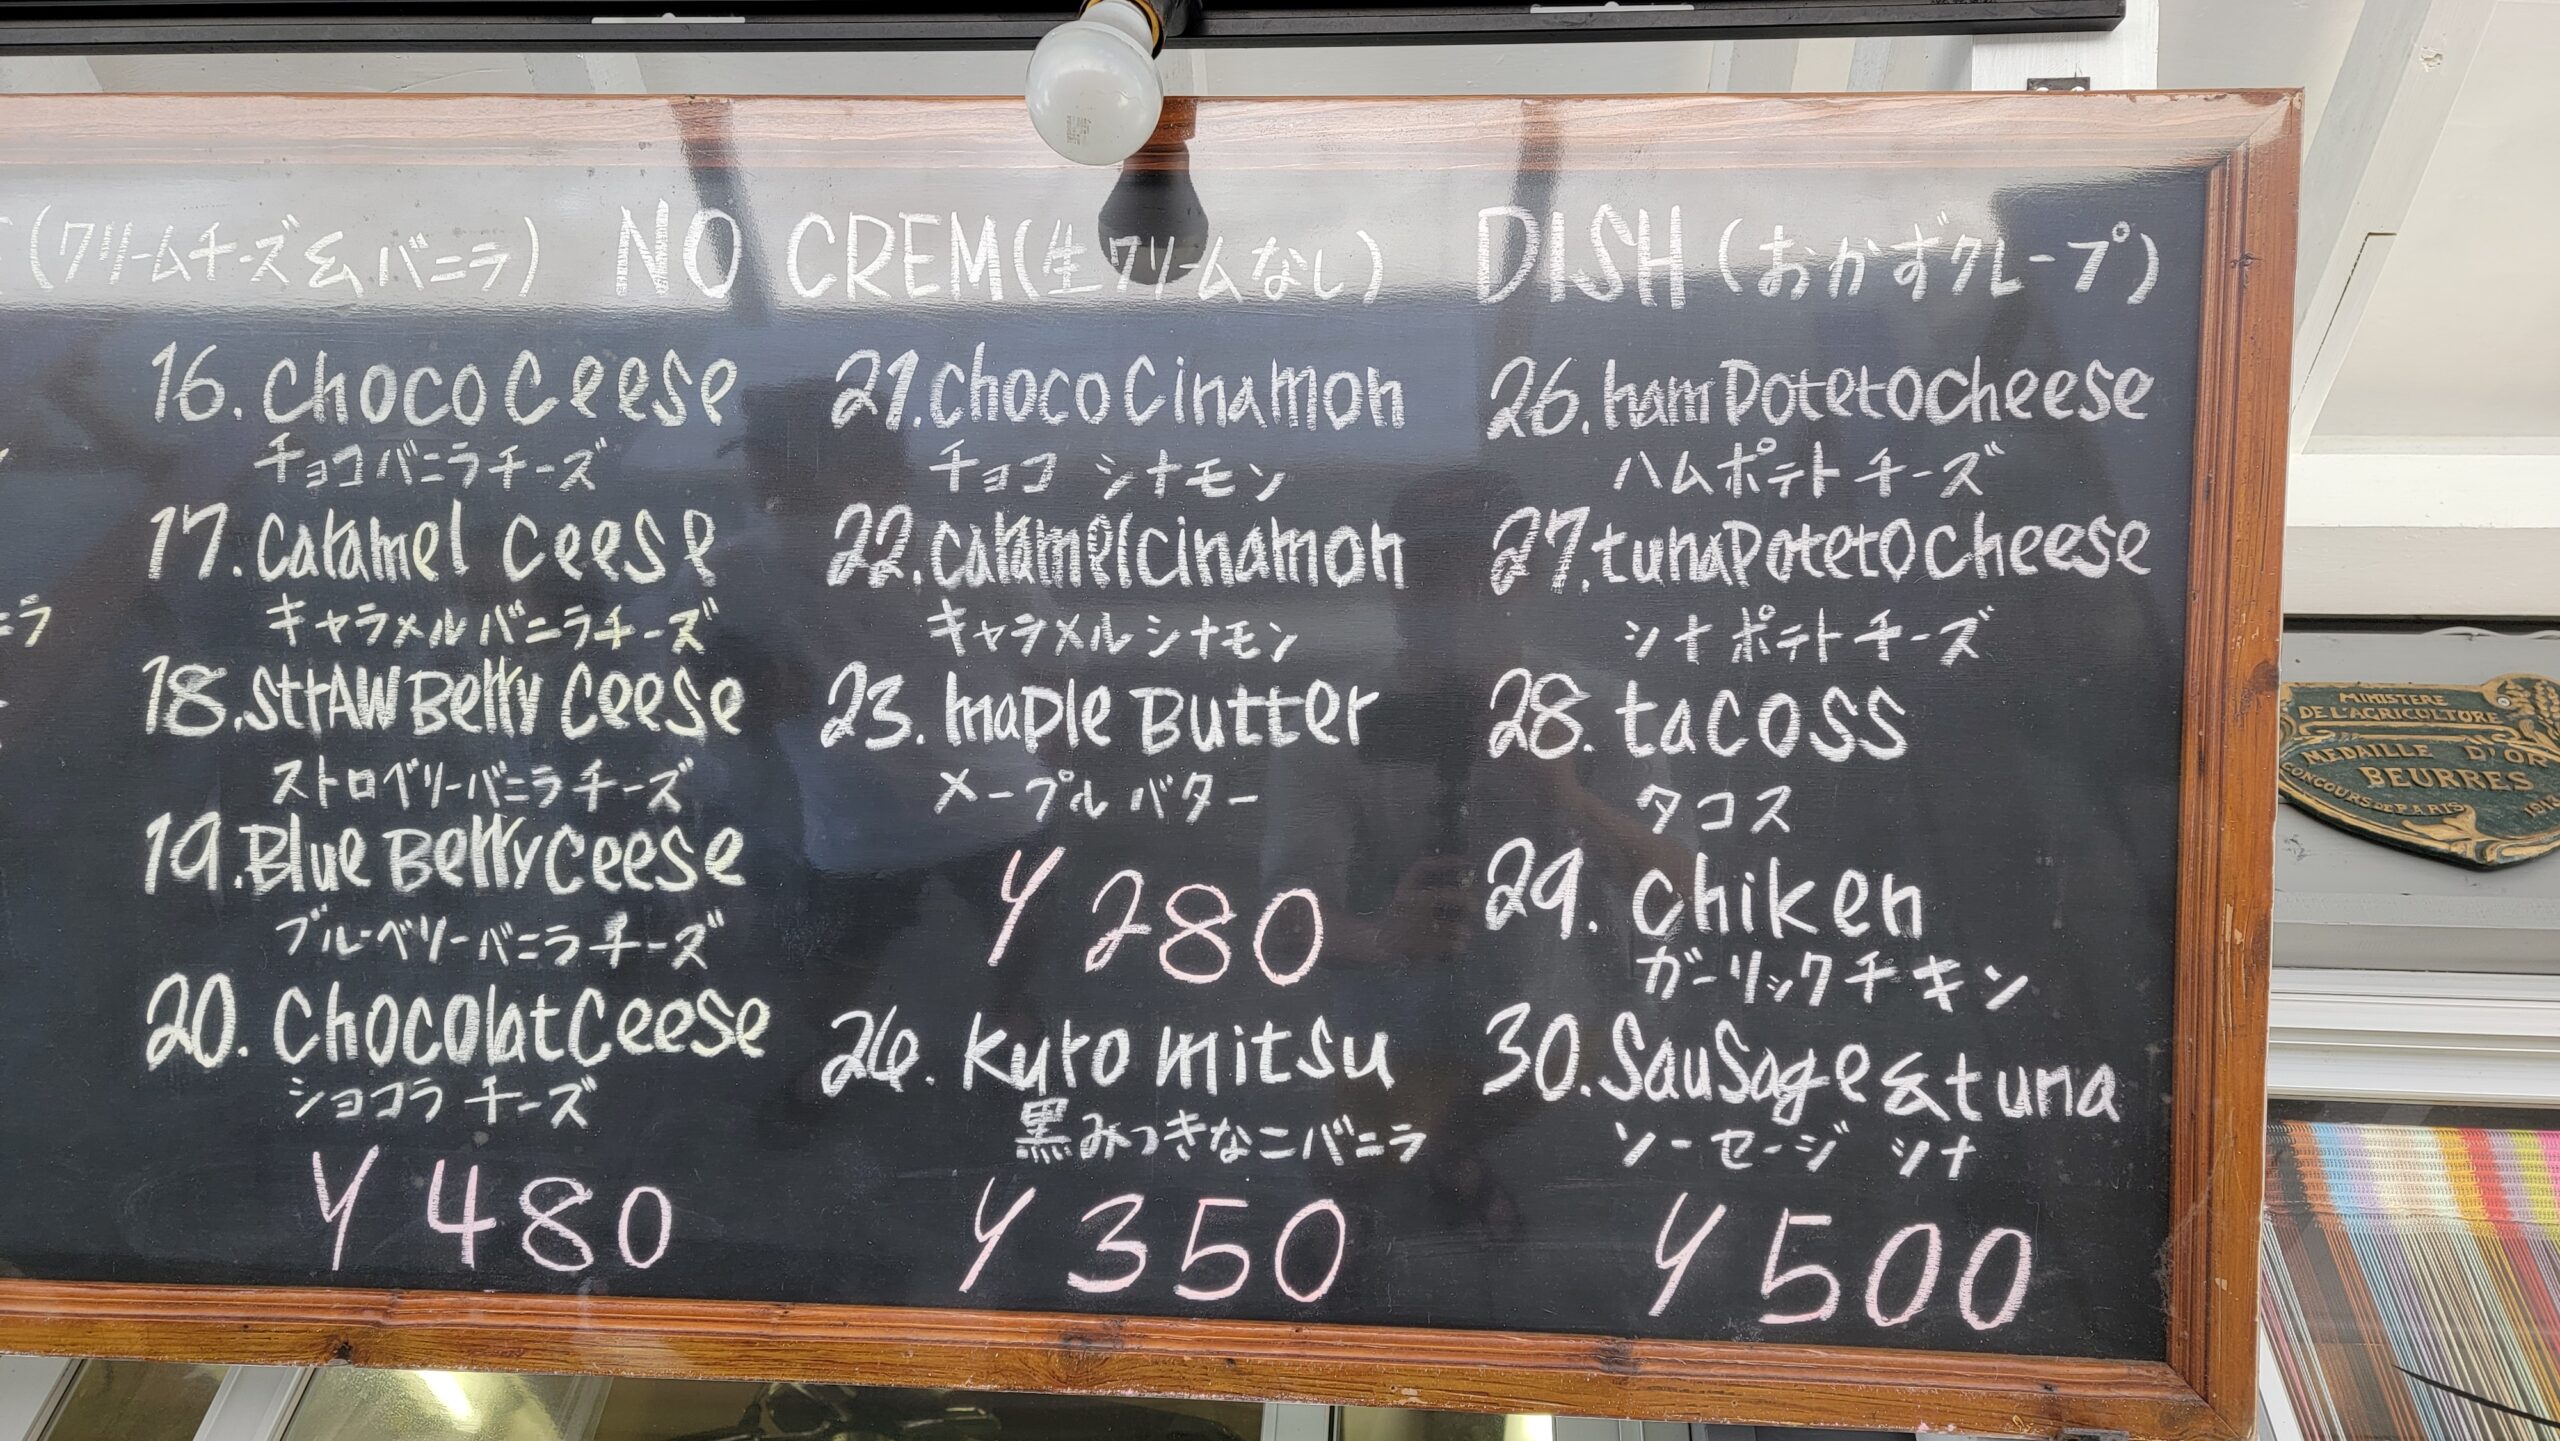 (クリームチーズ&バニラ)
16. choco ceese
チョコバニラチーズ
17. caramel ceese
キャラメルバニラチーズ
18. strawBerry ceese
ストロベリーバニラチーズ
19. Blue Berry ceese
ブルーベリーバニラチーズ
20. chocolat ceese
ショコラ チーズ
¥480
NO CREM(生クリームなし)
21. choco cinamon
チョコ シナモン
22. caramel cinamon
キャラメルシナモン
23. maple Butter
メープル バター
¥280
24. kuro mitsu
黒みつきなこバニラ
¥350
DISH(おかずクレープ)
26. ham poteto cheese
ハムポテト チーズ
27. tuna poteto cheese
シナ ポテト チーズ
28. tacoss
タコス
29. chiken
ガーリックチキン
30. sausage & tuna
ソーセージ シナ
¥500
MINISTERE
DE L'AGRICULTURE
MEDAILLE D'OR
BEURRES
CONCOURS DE PARIS